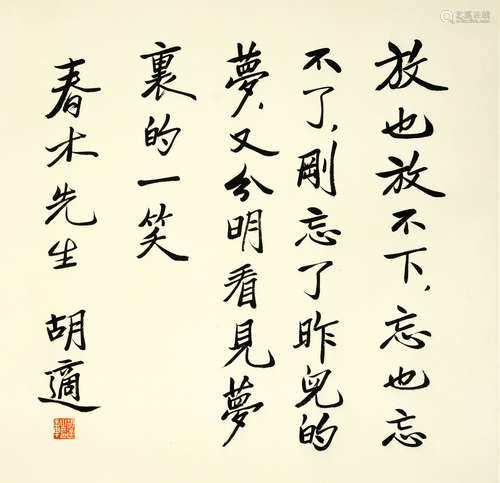 放也放不下,忘也忘
不了,剛忘了昨兒的
夢,又分明看見夢
裏的一笑
春木先生 胡適